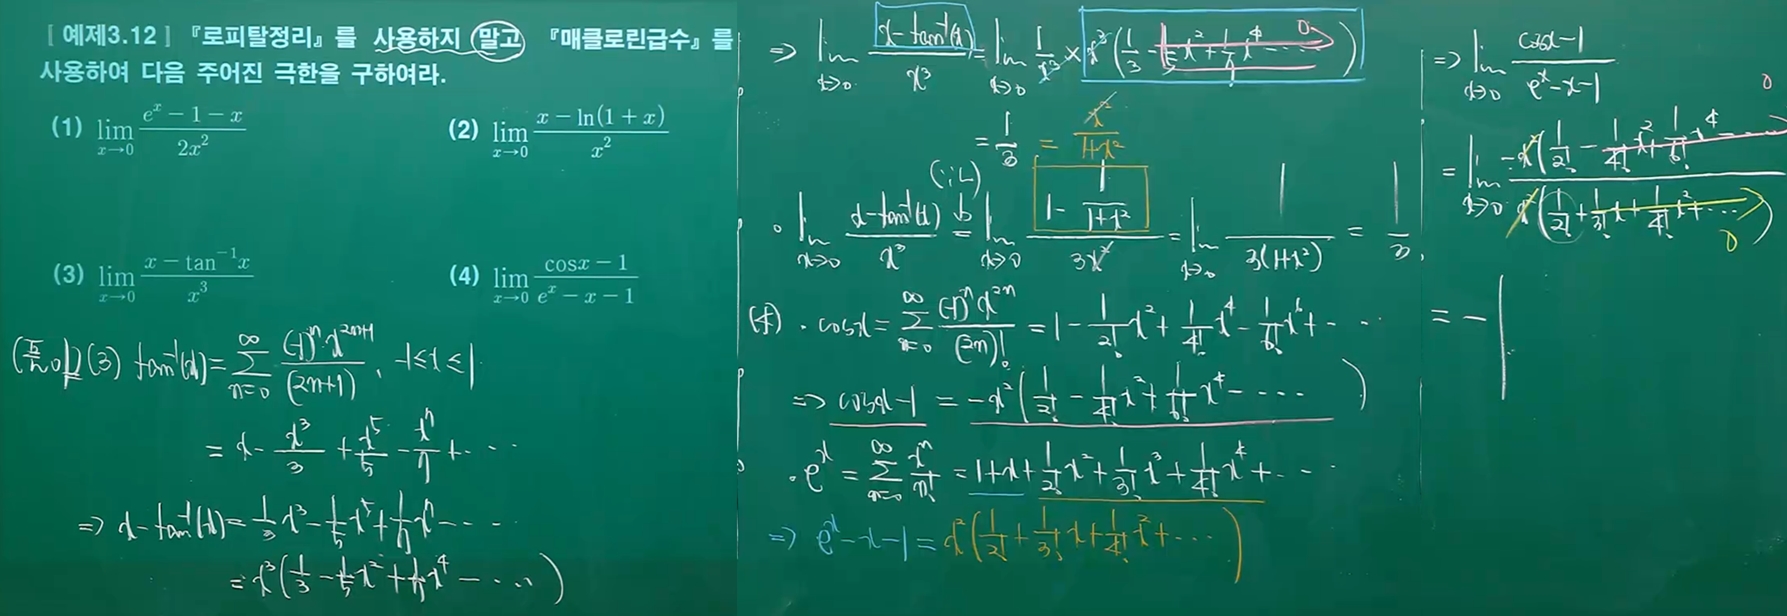 [ 예제3.12 ] 『로피탈정리』를 사용하지 말고 『매클로린급수』를
사용하여 다음 주어진 극한을 구하여라.
(1) lim_{x→0} (e^x − 1 − x)/(2x^2)
(2) lim_{x→0} (x − ln(1 + x))/(x^2)
(3) lim_{x→0} (x − tan^{-1}x)/(x^3)
(4) lim_{x→0} (cosx − 1)/(e^x − x − 1)
(풀이) (3) tan^{-1}(x) = Σ_{n=0}^{∞} (-1)^n x^{2n+1}/(2n+1), -1≤x≤1
= x - x^3/3 + x^5/5 - x^7/7 + ···
=> x - tan^{-1}(x) = 1/3 x^3 - 1/5 x^5 + 1/7 x^7 - ···
= x^3(1/3 - 1/5 x^2 + 1/7 x^4 - ···)
=> lim_{x→0} (x - tan^{-1}(x))/x^3 = lim_{x→0} 1/x^3 × x^3(1/3 - 1/5 x^2 + 1/7 x^4 - ···) 0
= 1/3 = x^2/(1+x^2)
(∵L)
· lim_{x→0} (x - tan^{-1}(x))/x^3 = lim_{x→0} (1 - 1/(1+x^2))/(3x^2) = lim_{x→0} 1/(3(1+x^2)) = 1/3.
(4) · cosx = Σ_{n=0}^{∞} (-1)^n x^{2n}/(2n)! = 1 - 1/2! x^2 + 1/4! x^4 - 1/6! x^6 + - ···
=> cosx - 1 = -x^2(1/2! - 1/4! x^2 + 1/6! x^4 - ····)
· e^x = Σ_{n=0}^{∞} x^n/n! = 1 + x + 1/2! x^2 + 1/3! x^3 + 1/4! x^4 + ···
=> e^x - x - 1 = x^2(1/2! + 1/3! x + 1/4! x^2 + ···)
=> lim_{x→0} (cosx - 1)/(e^x - x - 1)
= lim_{x→0} -x^2(1/2! - 1/4! x^2 + 1/6! x^4 - ···) 0 / x^2(1/2! + 1/3! x + 1/4! x^2 + ···) 0
= - 1